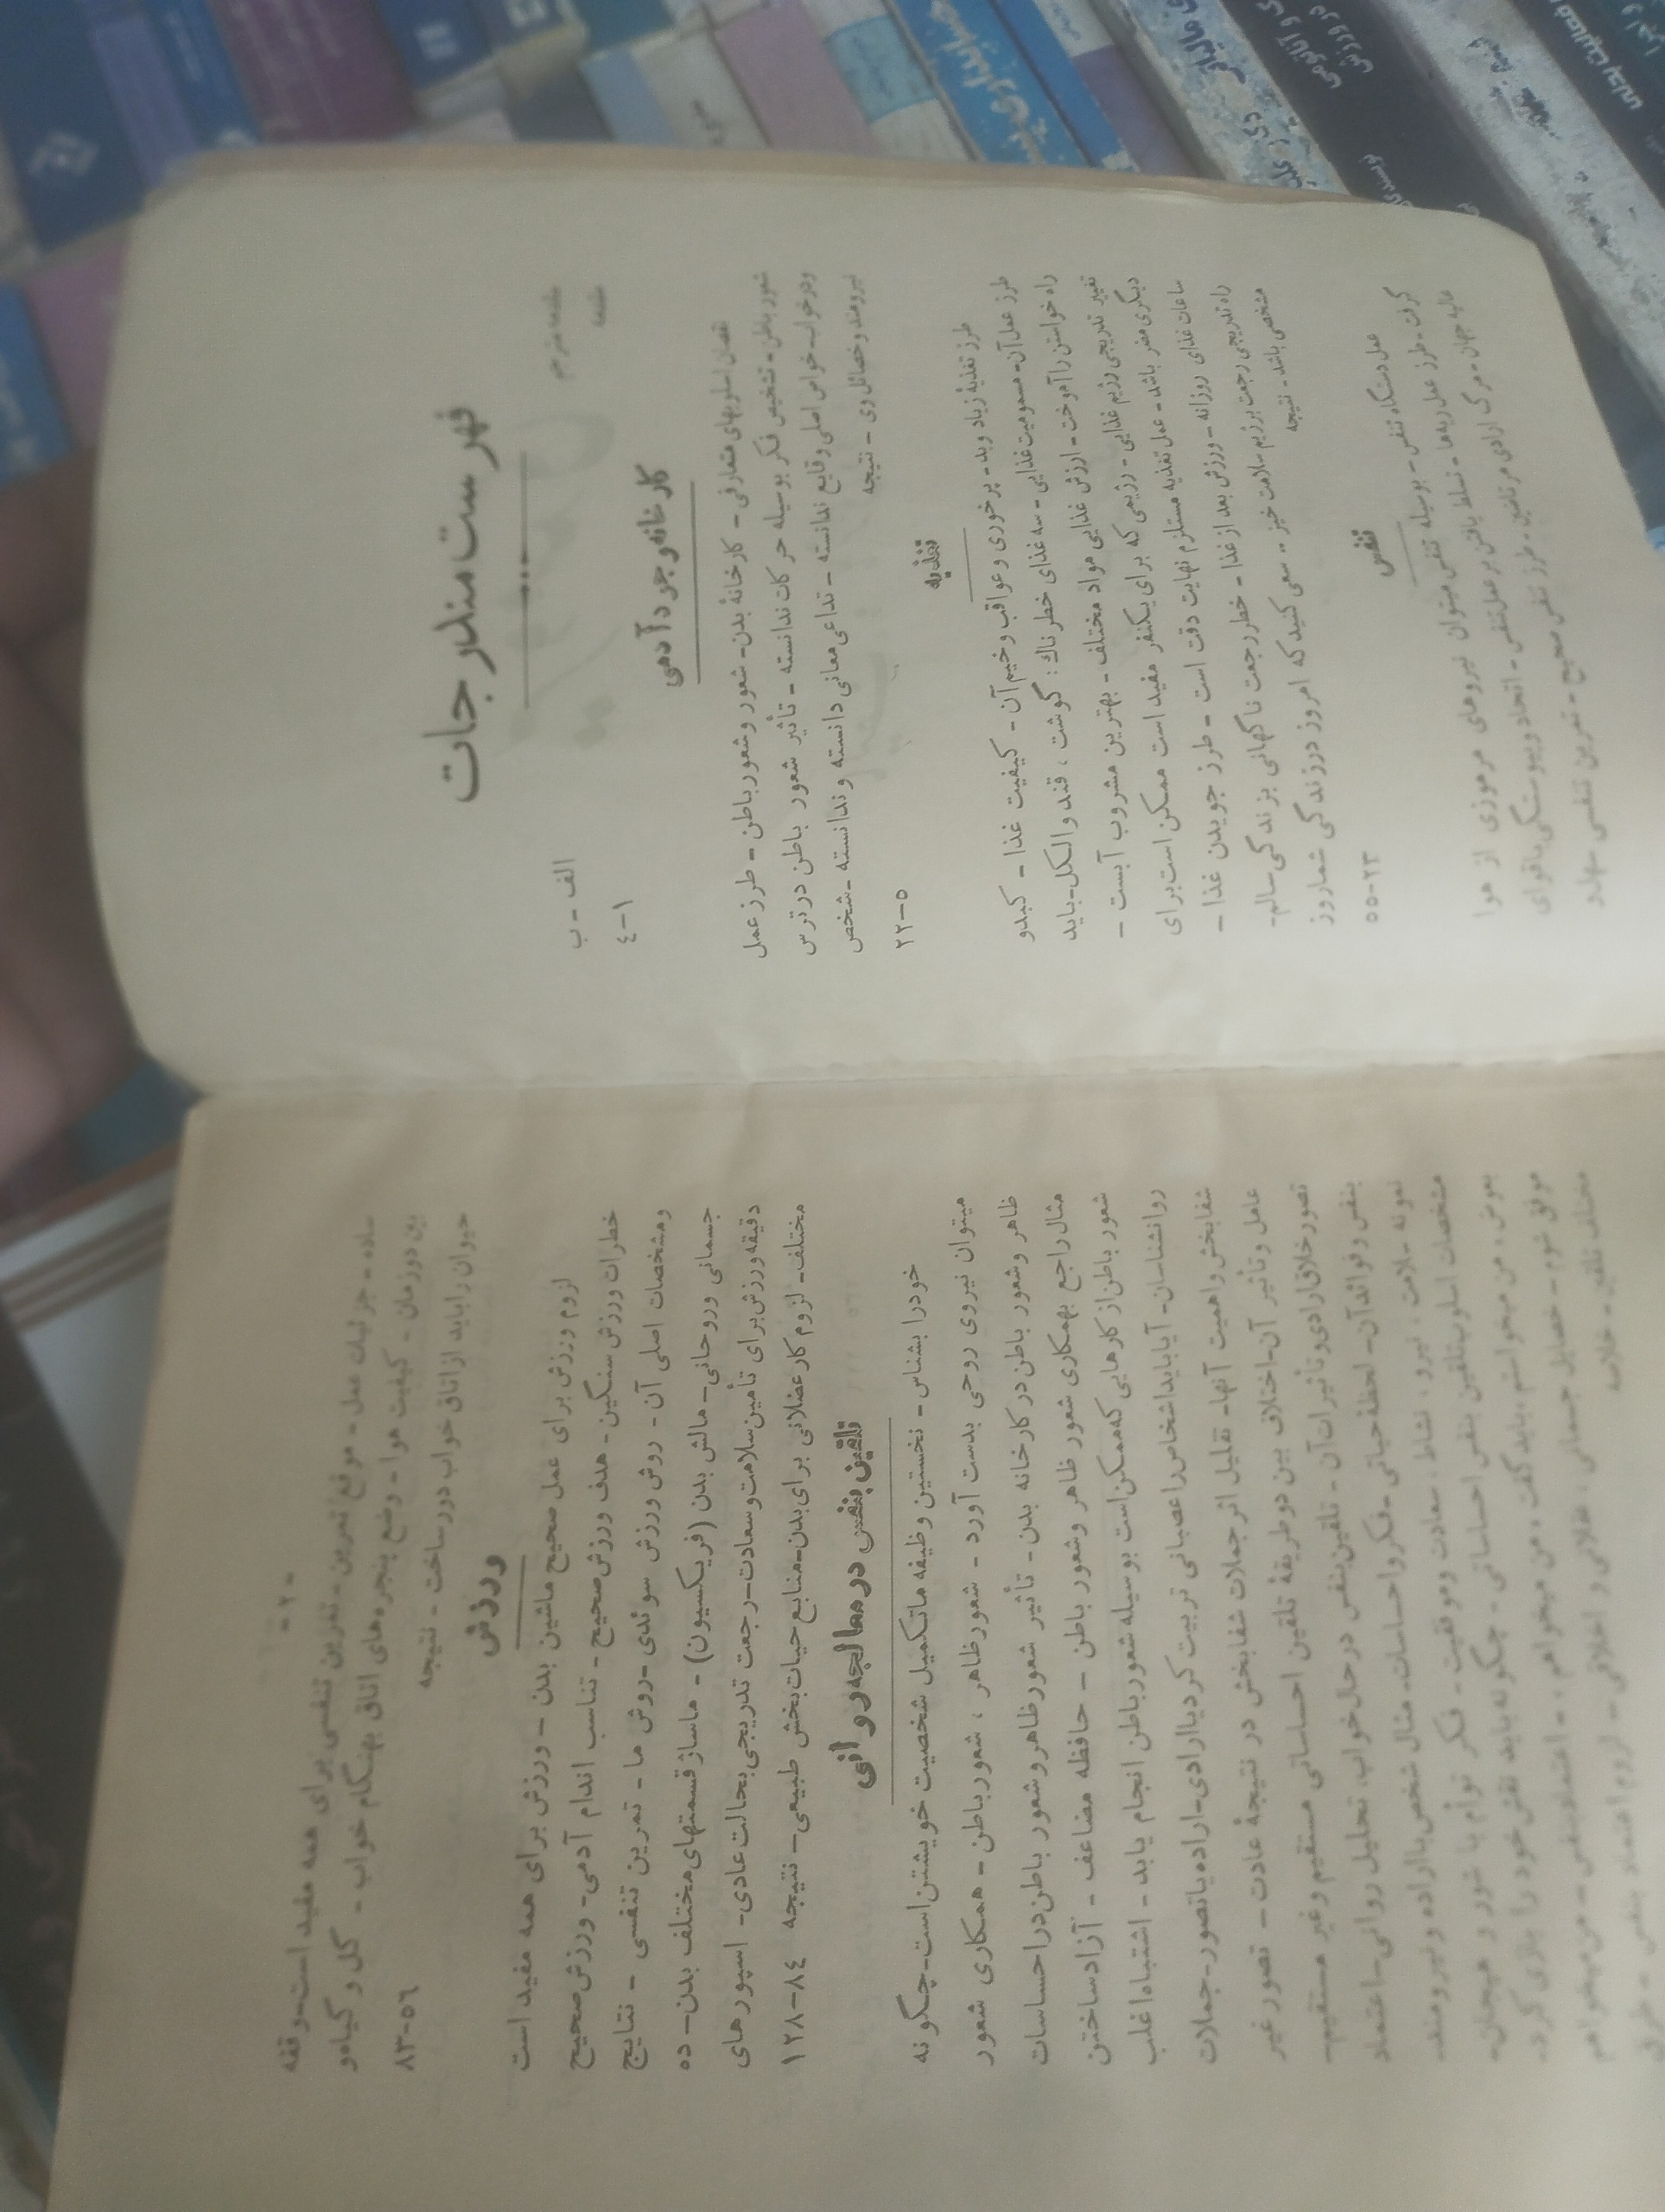 فهرست مندرجات
مقدمه مترجم
الف - ب
مقدمه
۱-۴
کارخانه وجود آدمی
نقصان اسلوبهای متعارفی - کارخانهٔ بدن - شعور و شعور باطن - طرز عمل
شعور باطن - تشخیص فکر بوسیله حرکات ندانسته - تأثیر شعور باطن در ترس
و در خواب - خواص اصلی وقایع ندانسته - تداعی معانی دانسته و ندانسته - شخص
نیرومند و خصائل وی - نتیجه
۵-۲۲
تغذیه
طرز تغذیهٔ زیاد و بد - پرخوری و عواقب وخیم آن - کیفیت غذا - کبد و
طرز عمل آن - مسمومیت غذایی - سه غذای خطرناک : گوشت ، قند و الکل - باید
راه خواستن را آموخت - ارزش غذایی مواد مختلف - بهترین مشروب آبست -
تغییر تدریجی رژیم غذایی - رژیمی که برای یکنفر مفید است ممکن است برای
دیگری مضر باشد - عمل تغذیه مستلزم نهایت دقت است - طرز جویدن غذا -
ساعات غذای روزانه - ورزش بعد از غذا - خطر رجعت ناگهانی بزندگی سالم -
راه تدریجی رجعت برژیم سلامت خیز - سعی کنید که امروز در زندگی شما روز
مشخصی باشد - نتیجه
۲۳-۵۵
تنفس
عمل دستگاه تنفس - بوسیله تنفس میتوان نیروهای مرموزی از هوا
گرفت - طرز عمل ریه‌ها - تسلط یافتن بر عمل تنفس - اتحاد و پیوستگی با قوای
عالیه جهان - مرگ ارادی مرتاضین - طرز تنفس صحیح - تمرین تنفسی سهل و
- ۲ -
ساده - جزئیات عمل - موقع تمرین - تمرین تنفسی برای همه مفید است - وقفه
بین دو زمان - کیفیت هوا - وضع پنجره‌های اتاق بهنگام خواب - گل و گیاه و
حیوان را باید از اتاق خواب دور ساخت - نتیجه
۵۶-۸۳
ورزش
لزوم ورزش برای عمل صحیح ماشین بدن - ورزش برای همه مفید است
خطرات ورزش سنگین - هدف ورزش صحیح - تناسب اندام آدمی - ورزش صحیح
و مشخصات اصلی آن - روش ورزش سوئدی - روش ما - تمرین تنفسی - نتایج
جسمانی و روحانی - مالش بدن (فریکسیون) - ماساژ قسمتهای مختلف بدن - ده
دقیقه ورزش برای تأمین سلامت و سعادت - رجعت تدریجی بحالت عادی - اسپورهای
مختلف - لزوم کار عضلانی برای بدن - منابع حیات بخش طبیعی - نتیجه ۸۴-۱۲۸
تلقین بنفس در معالجه روانی
خود را بشناس - نخستین وظیفه ما تکمیل شخصیت خویشتن است - چگونه
میتوان نیروی روحی بدست آورد - شعور ظاهر ، شعور باطن - همکاری شعور
ظاهر و شعور باطن در کارخانه بدن - تأثیر شعور ظاهر و شعور باطن در احساسات
مثال راجع بهمکاری شعور ظاهر و شعور باطن - حافظه مضاعف - آزاد ساختن
شعور باطن از کارهایی که ممکن است بوسیله شعور باطن انجام یابد - اشتباه اغلب
روانشناسان - آیا باید اشخاص را عصبانی تربیت کرد یا ارادی - اراده یا تصور - جملات
شفابخش و اهمیت آنها - تقلیل اثر جملات شفابخش در نتیجهٔ عادت - تصور غیر
عامل و تأثیر آن - اختلاف بین دو طریقهٔ تلقین احساساتی مستقیم و غیر مستقیم -
تصور خلاق ارادی و تأثیرات آن - تلقین بنفس در حال خواب، تحلیل روانی - اعتماد
بنفس و فوائد آن - لحظهٔ حیاتی - فکر و احساسات - مثال شخص با اراده و نیرومند -
نمونه سلامت ، نیرو ، نشاط ، سعادت و موفقیت - فکر توأم با شور و هیجان -
مشخصات اسلوب تلقین بنفس احساساتی - چگونه باید نقش خود را بازی کرد -
بعوض ، من میخواستم ، باید گفت ، من میخواهم ، - اعتماد بنفس - من میخواهم
موفق شوم - خصایل جسمانی ، عقلانی و اخلاقی - لزوم اعتماد بنفس - طرق
مختلف تلقین - خلاصه